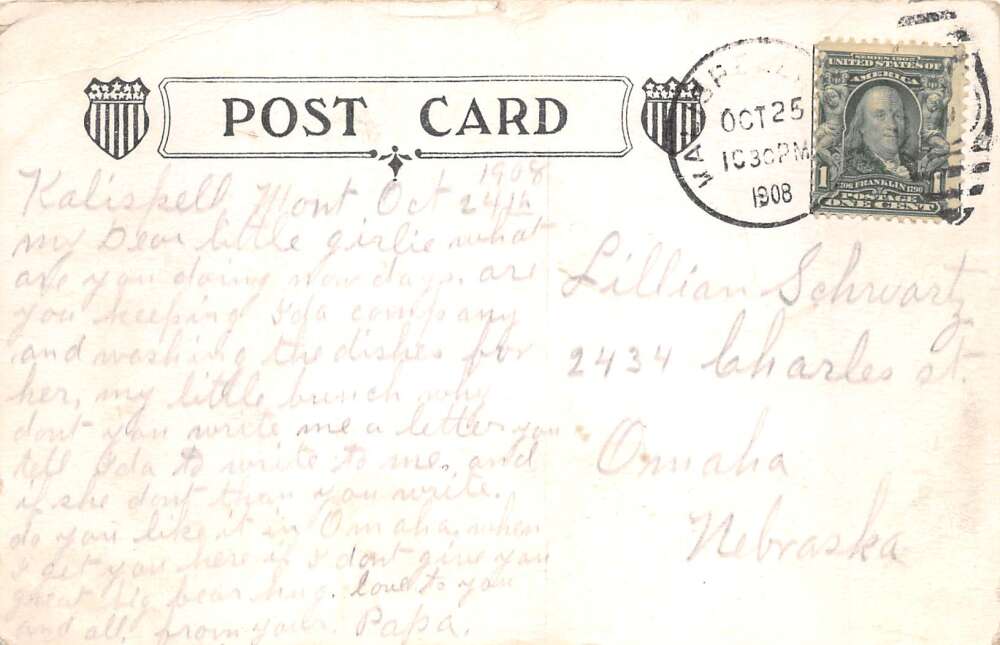 POST CARD
OCT 25
10 30 PM
1908
SERIES 1902
UNITED STATES OF
AMERICA
1706 FRANKLIN 1790
1 1
POSTAGE
ONE CENT
1908
Kalispell Mont Oct 24th
my Dear little girlie what
are you doing now days. are
you keeping Ida company
and washing the dishes for
her, my little bunch why
dont you write me a letter you
tell Ida to write to me, and
if she dont than you write.
do you like it in Omaha, when
I get you here if I dont give you
great big bear hug. love to you
and all, from your Papa.
Lillian Schwartz
2434 Charles st.
Omaha
Nebraska